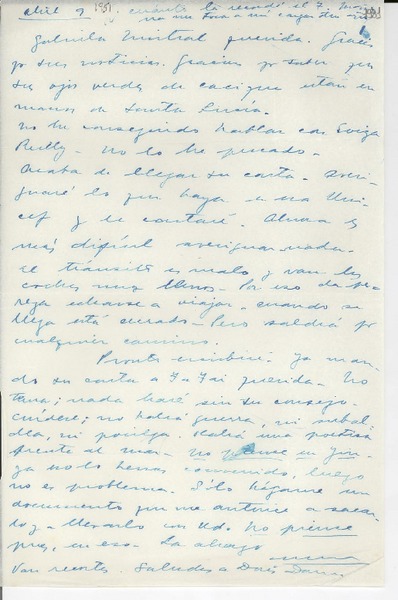 abril 9 1951 cuánto la recordé el 7
Gabriela Mistral querida. Gracias
por sus noticias. Gracias por saber que
sus ojos verdes de cacique están en
manos de Santa Lucía.
no he conseguido hablar con
Reilly - no lo he pescado -
Acaba de llegar su carta. Averi-
guaré lo que haya en esa Uni-
cef y le contaré. Ahora es
más difícil averiguar nada.
el tránsito es malo y van los
coches muy llenos - Por eso da pe-
reza echarse a viajar - cuando se
llega está cerrado - Pero saldrá por
cualquier camino.
Pronto escribiré - Ya man-
do su carta a querida - No
tema; nada haré sin su consejo -
cuídese; no habrá guerra, ni
ni Habrá una
frente al mar - no piense en
ya no lo hemos convenido, luego
no es problema. Sólo hágame un
documento que me autorice a sacar-
lo y llevarlo con Ud. No piense
pues, en eso - La abraza
Van recortes. Saludos a Doris Dana